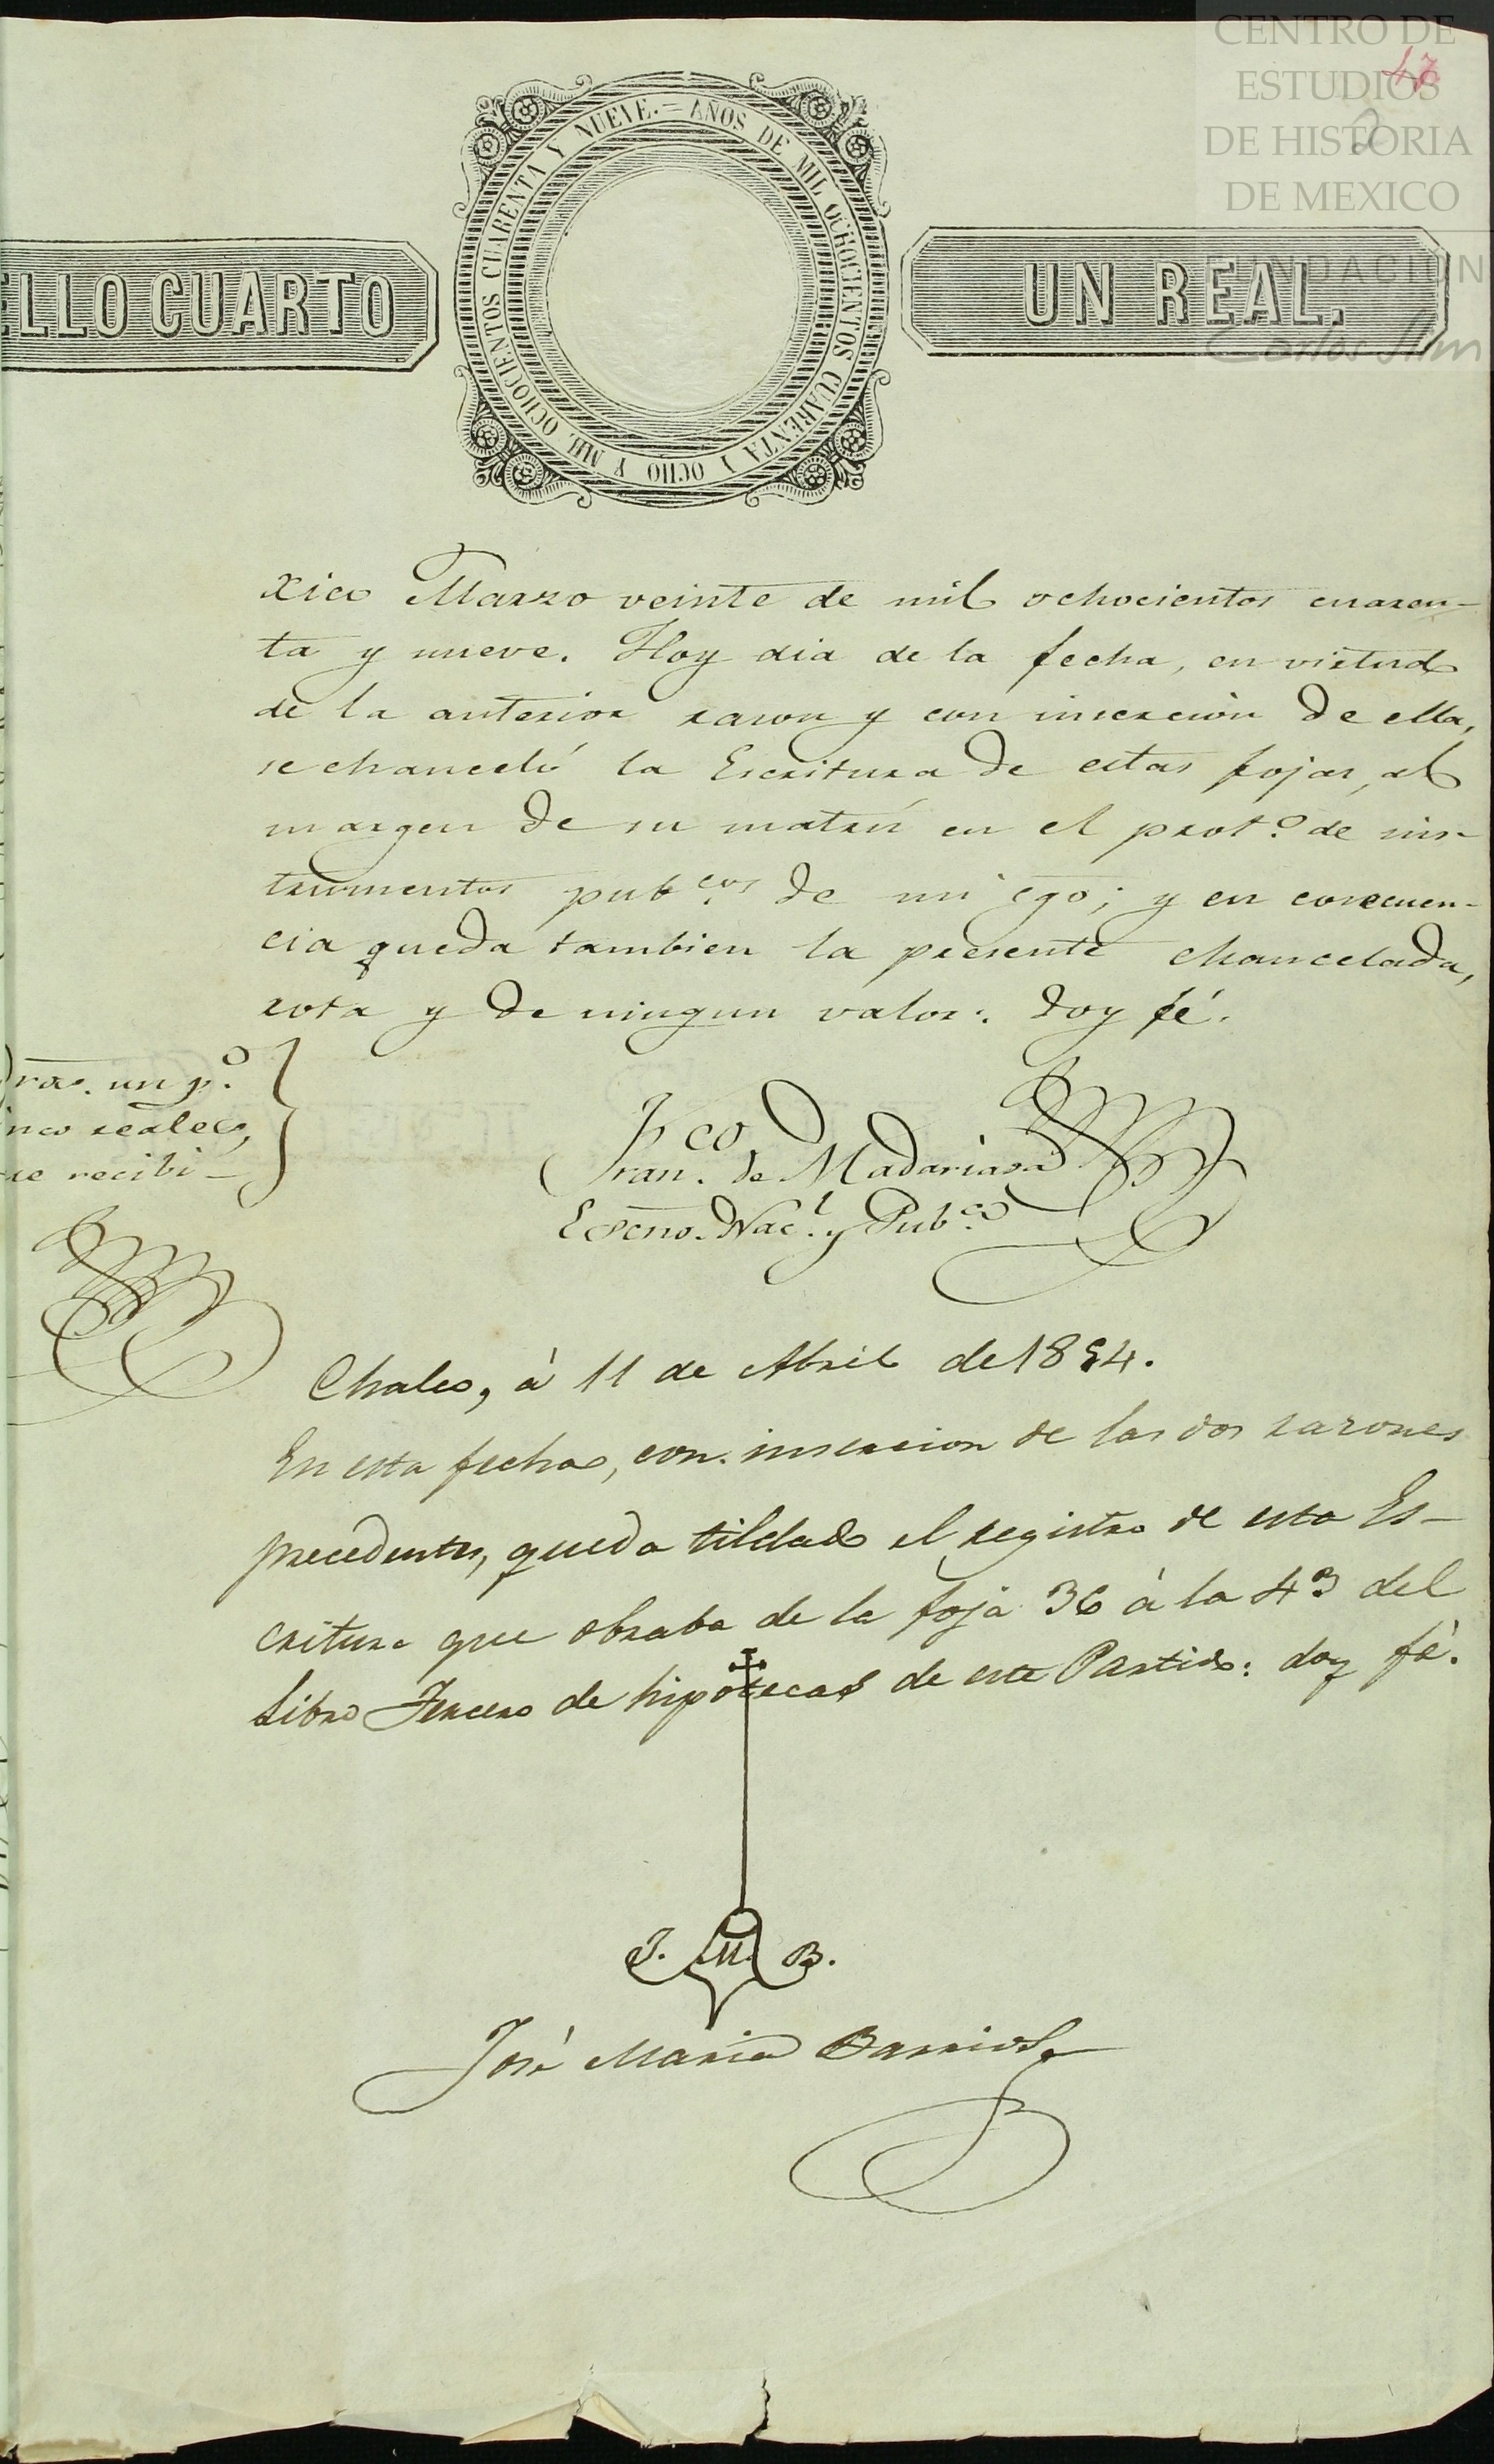 CENTRO DE
ESTUDIOS
DE HISTORIA
DE MEXICO
FUNDACIÓN
Carlos Slim
47
2
ELLO CUARTO
AÑOS DE MIL OCHOCIENTOS CUARENTA Y OCHO Y MIL OCHOCIENTOS CUARENTA Y NUEVE.=
UN REAL.
xico Marzo veinte de mil ochocientos cuaren-
ta y nueve. Hoy dia de la fecha, en virtud
de la anterior razon y con insercion de ella,
se chanceló la Escritura de estas fojas, al
margen de su matriz en el prot.o de ins-
trumentos pub.cos de mi cgo; y en consecuen-
cia queda tambien la presente chancelada,
rota y de ningun valor: doy fé.
Dras. un p.o
inco reales,
ue recibi-
Fran.co de Madariaga
Escno. Nac.l y Pub.co
Chalco, à 11 de Abril de 1854.
En esta fecha, con insercion de las dos razones
precedentes, queda tildado el registro de esta Es-
critura que obraba de la foja 36 à la 43 del
Libro Tercero de hipotecas de este Partido: doy fé.
J. M. B.
José Maria Barrios